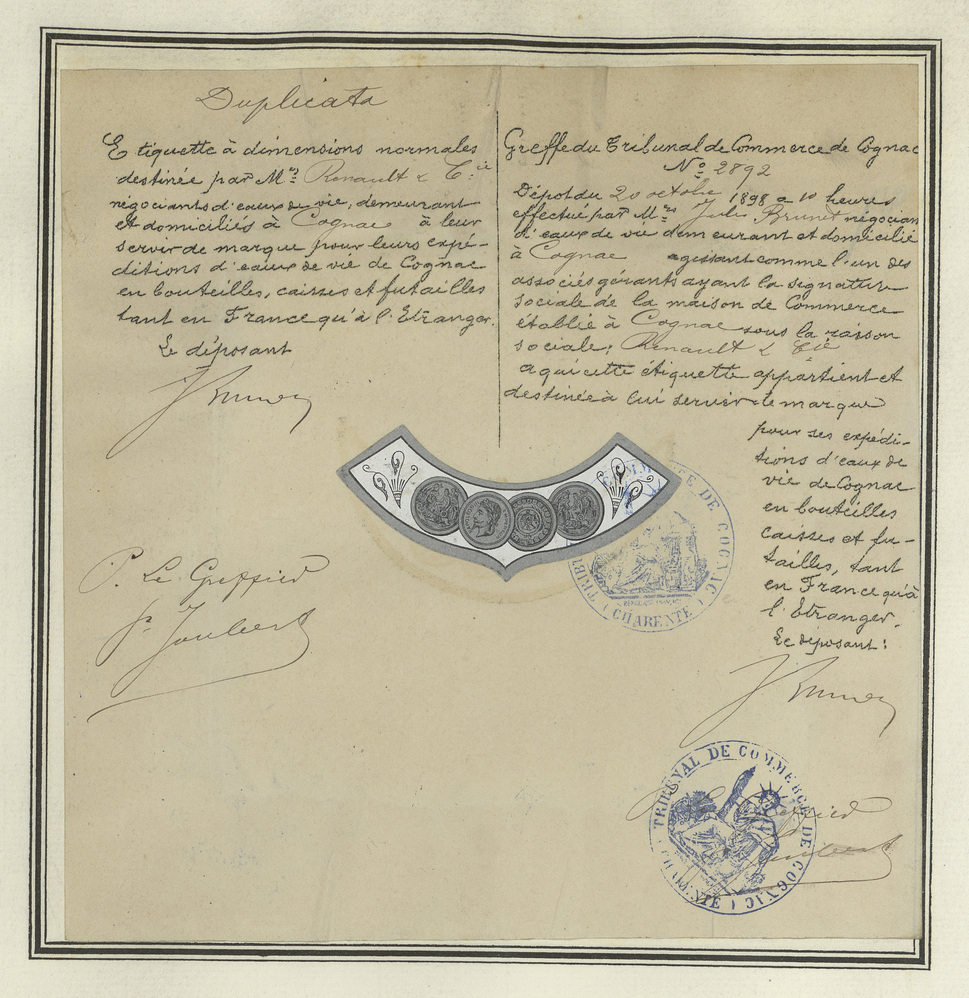 Duplicata
Etiquette à dimensions normales
destinée par Mrs Renault & Cie
négociants d'eaux de vie, demeurant
et domiciliés à Cognac à leur
servir de marque pour leurs expé-
ditions d'eaux de vie de Cognac
en bouteilles, caisses et futailles
tant en France qu'à l'Etranger.
Le déposant
J Brunet
P. Le Greffier
P. Joubert
Greffe du Tribunal de Commerce de Cognac
No 2892
Dépot du 20 octobre 1898 a 10 heures
effectué par Mr Jules Brunet négociant
d'eaux de vie demeurant et domicilié
à Cognac agissant comme l'un des
associés gérants ayant la signature
sociale de la maison de Commerce
établie à Cognac sous la raison
sociale: Renault & Cie
a qui cette étiquette appartient et
destinée à lui servir de marque
pour ses expédi-
tions d'eaux de
vie de Cognac
en bouteilles
caisses et fu-
tailles, tant
en France qu'à
l'Etranger.
Le déposant:
J Brunet
COMMERCE DE COGNAC
( CHARENTE )
TRIBUNAL DE COMMERCE DE COGNAC
( CHARENTE )
Greffier
Joubert